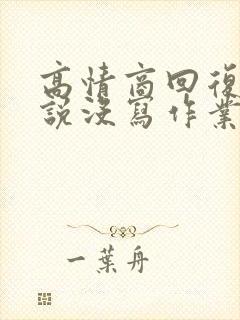 高情商回復
說沒寫作業
一葉舟